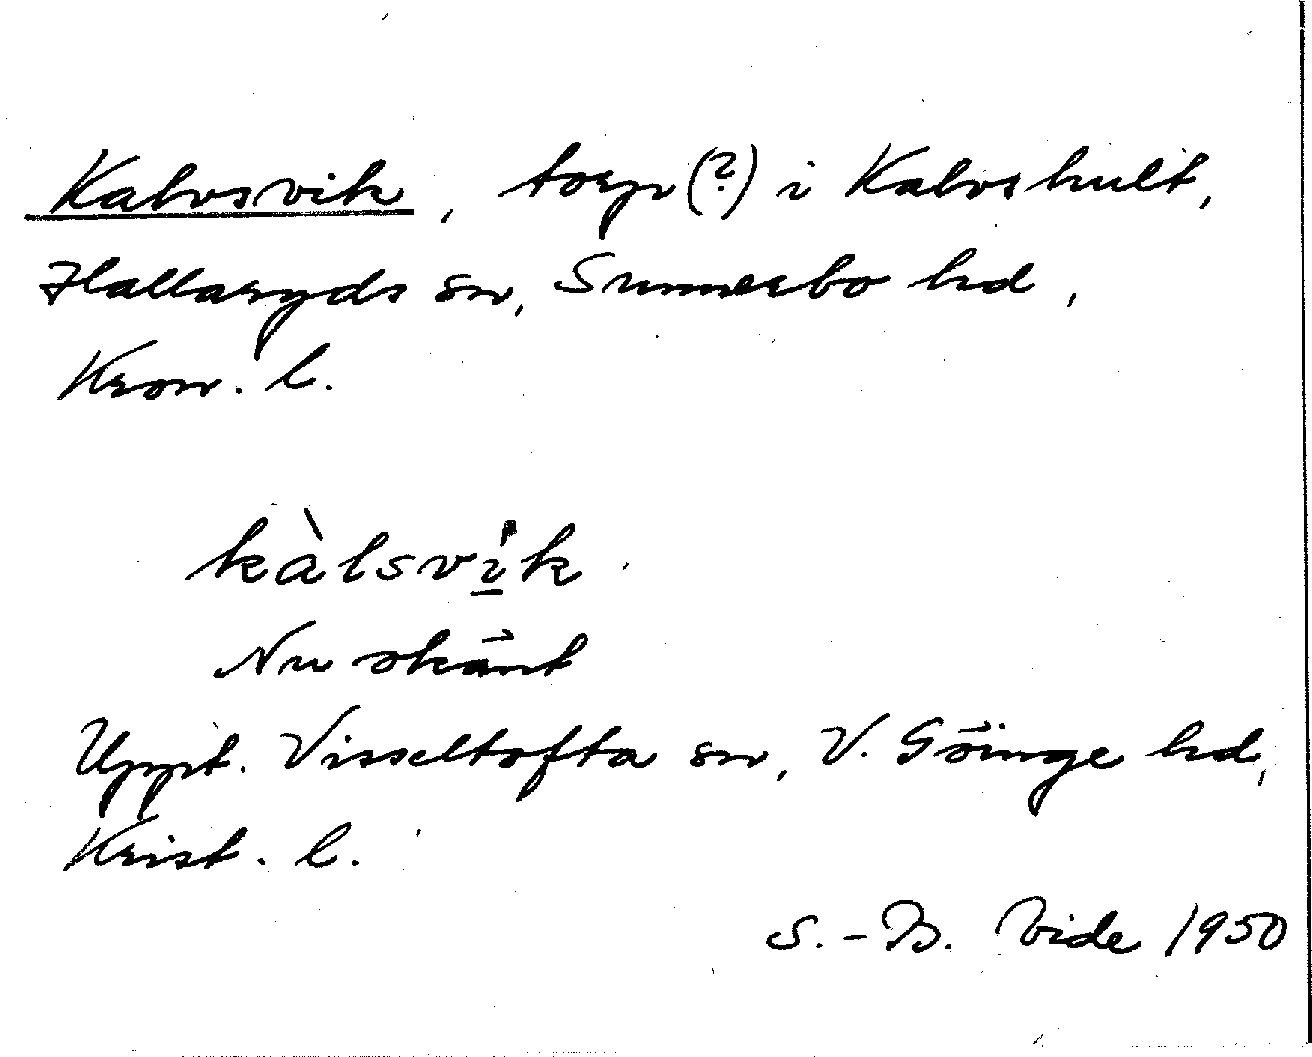 Kalvsvik, torp (?) i Kalvshult,
Hallaryds sn, Sunnerbo hd,
Kron. l.
kàlsvi̱k
Nu skånt
Uppt. Visseltofta sn, V. Göinge hd,
Krist. l.
S.-B. Vide 1950